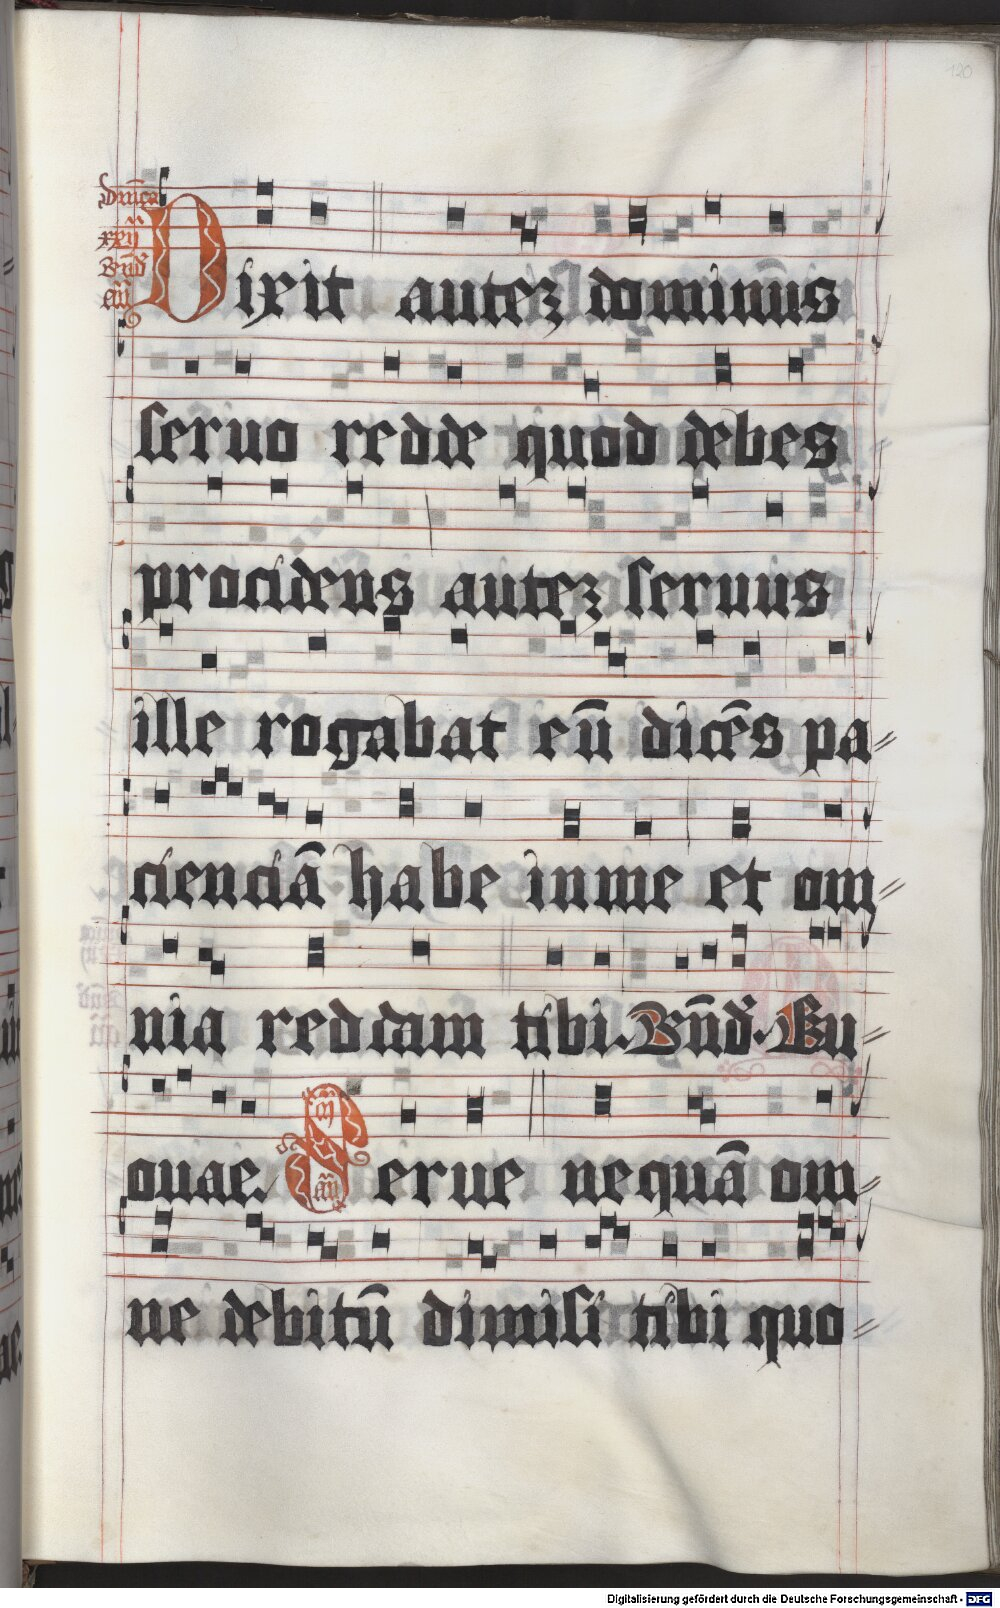 120
Dnica
xxij
Bñd
añ
Dixit autez dominus
seruo redde quod debes
procidens autez seruus
ille rogabat eū dicēs pa⸗
cienciā habe in me et om⸗
nia reddam tibi. Bñd. Eu⸗
ouae. Serue nequā om⸗
añ
ne debitū dimisi tibi quo⸗
Digitalisierung gefördert durch die Deutsche Forschungsgemeinschaft - DFG